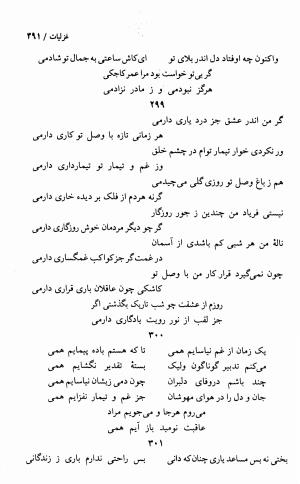 غزلیات / ۳۹۱
واکنون چه اوفتاد دل اندر بلای تو ای کاش ساعتی به جمال تو شادمی
گر بی تو خواست بود مرا عمر کاجکی
هرگز نبودمی و ز مادر نزادمی
۲۹۹
گر من اندر عشق جز درد یاری دارمی
هر زمانی تازه با وصل تو کاری دارمی
ور نکردی خوار تیمار توام در چشم خلق
وز غم و تیمار تو تیمارداری دارمی
هم ز باغ وصل تو روزی گلی می‌چیدمی
گرنه هردم از فلک بر دیده خاری دارمی
نیستی فریاد من چندین ز جور روزگار
گر چو دیگر مردمان خوش روزگاری دارمی
نالهٔ من هر شبی کم باشدی از آسمان
در غمت گر جز کواکب غمگساری دارمی
چون نمی‌گیرد قرار کار من با وصل تو
کاشکی چون عاقلان باری قراری دارمی
روزم از عشقت چو شب تاریک بگذشتی اگر
جز لقب از نور رویت یادگاری دارمی
۳۰۰
یک زمان از غم نیاسایم همی تا که هستم باده پیمایم همی
می‌کنم تدبیر گوناگون ولیک بستهٔ تقدیر نگشایم همی
چند باشم در وفای دلبران چون دمی زیشان نیاسایم همی
جان و دل را در هوای مهوشان جز غم و تیمار نفزایم همی
می‌روم هرجا و می‌جویم مراد
عاقبت نومید باز آیم همی
۳۰۱
بختی نه بس مساعد یاری چنان که دانی بس راحتی ندارم باری ز زندگانی